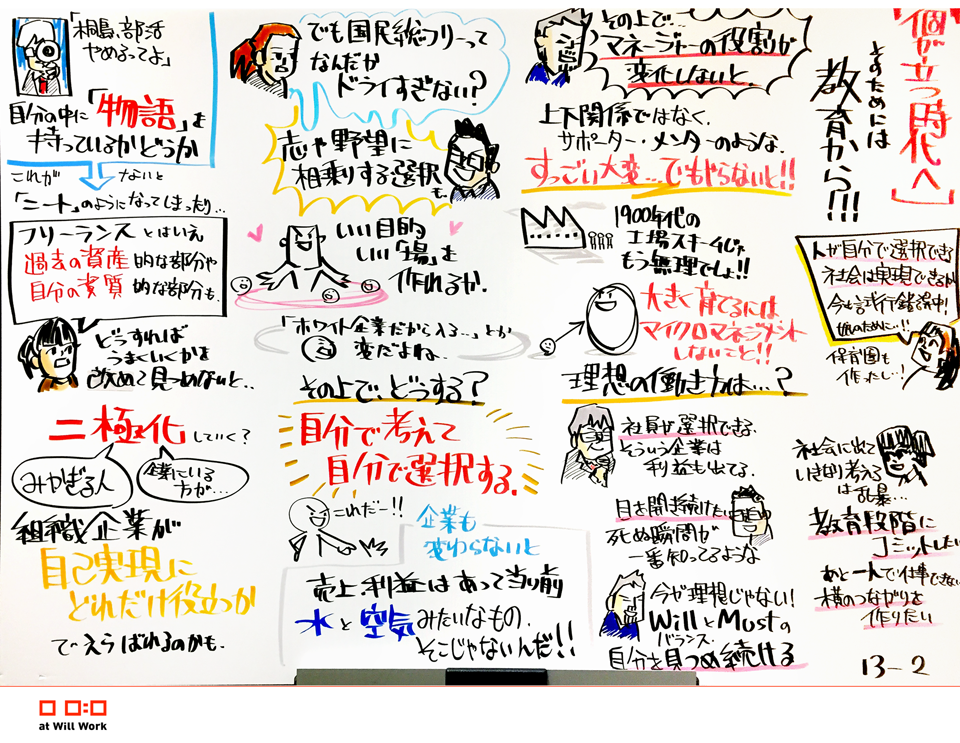 「桐島、部活
やめるってよ」
自分の中に「物語」を
持っているかどうか
これが ないと
「ニート」のようになってしまったり…
フリーランスとはいえ
過去の資産的な部分や
自分の資質的な部分も、
どうすれば
うまくいくかを
改めて見つめないと‥
二極化していく?
みやばる人
企業にいる
方が…
組織、企業が
自己実現に
どれだけ役立つか
で、えらばれるのかも、
でも国民総フリーって
なんだか
ドライすぎない?
志や野望に
相乗りする選択
も、
いい目的
いい「場」を
作れるか、
「ホワイト企業だから入る…」とか
変だよね、
その上で、どうする?
自分で考えて
自分で選択する。
これだー!!
企業も
変わらないと
売上、利益はあって当り前
水と空気みたいなもの、
そこじゃないんだ!!
その上で、
マネージャーの役割が
変化しないと、
上下関係ではなく、
サポーター・メンターのような、
すっごい大変…でもやらないと!!
1900年代の
工場スキームじゃ
もう無理でしょ!!
大きく育てるには
マイクロマネジメント
しないこと!!
理想の働き方は…?
社員が選択できる、
そういう企業は
利益も出てる、
目を開き続けたい
死ぬ瞬間が
一番知ってるような
今が理想じゃない!
WillとMustの
バランス、
自分を見つめ続ける
「個が立つ時代へ」
そのためには
教育から!!!
人が自分で選択できる
社会は実現できるか
今も試行錯誤中!
娘のために…!!
保育園も
作ったし…!
社会に出て
いきなり考えろ
は乱暴…
教育段階に
コミットしたい
あと一人で仕事できない
横のつながりを
作りたい
13-2
at Will Work